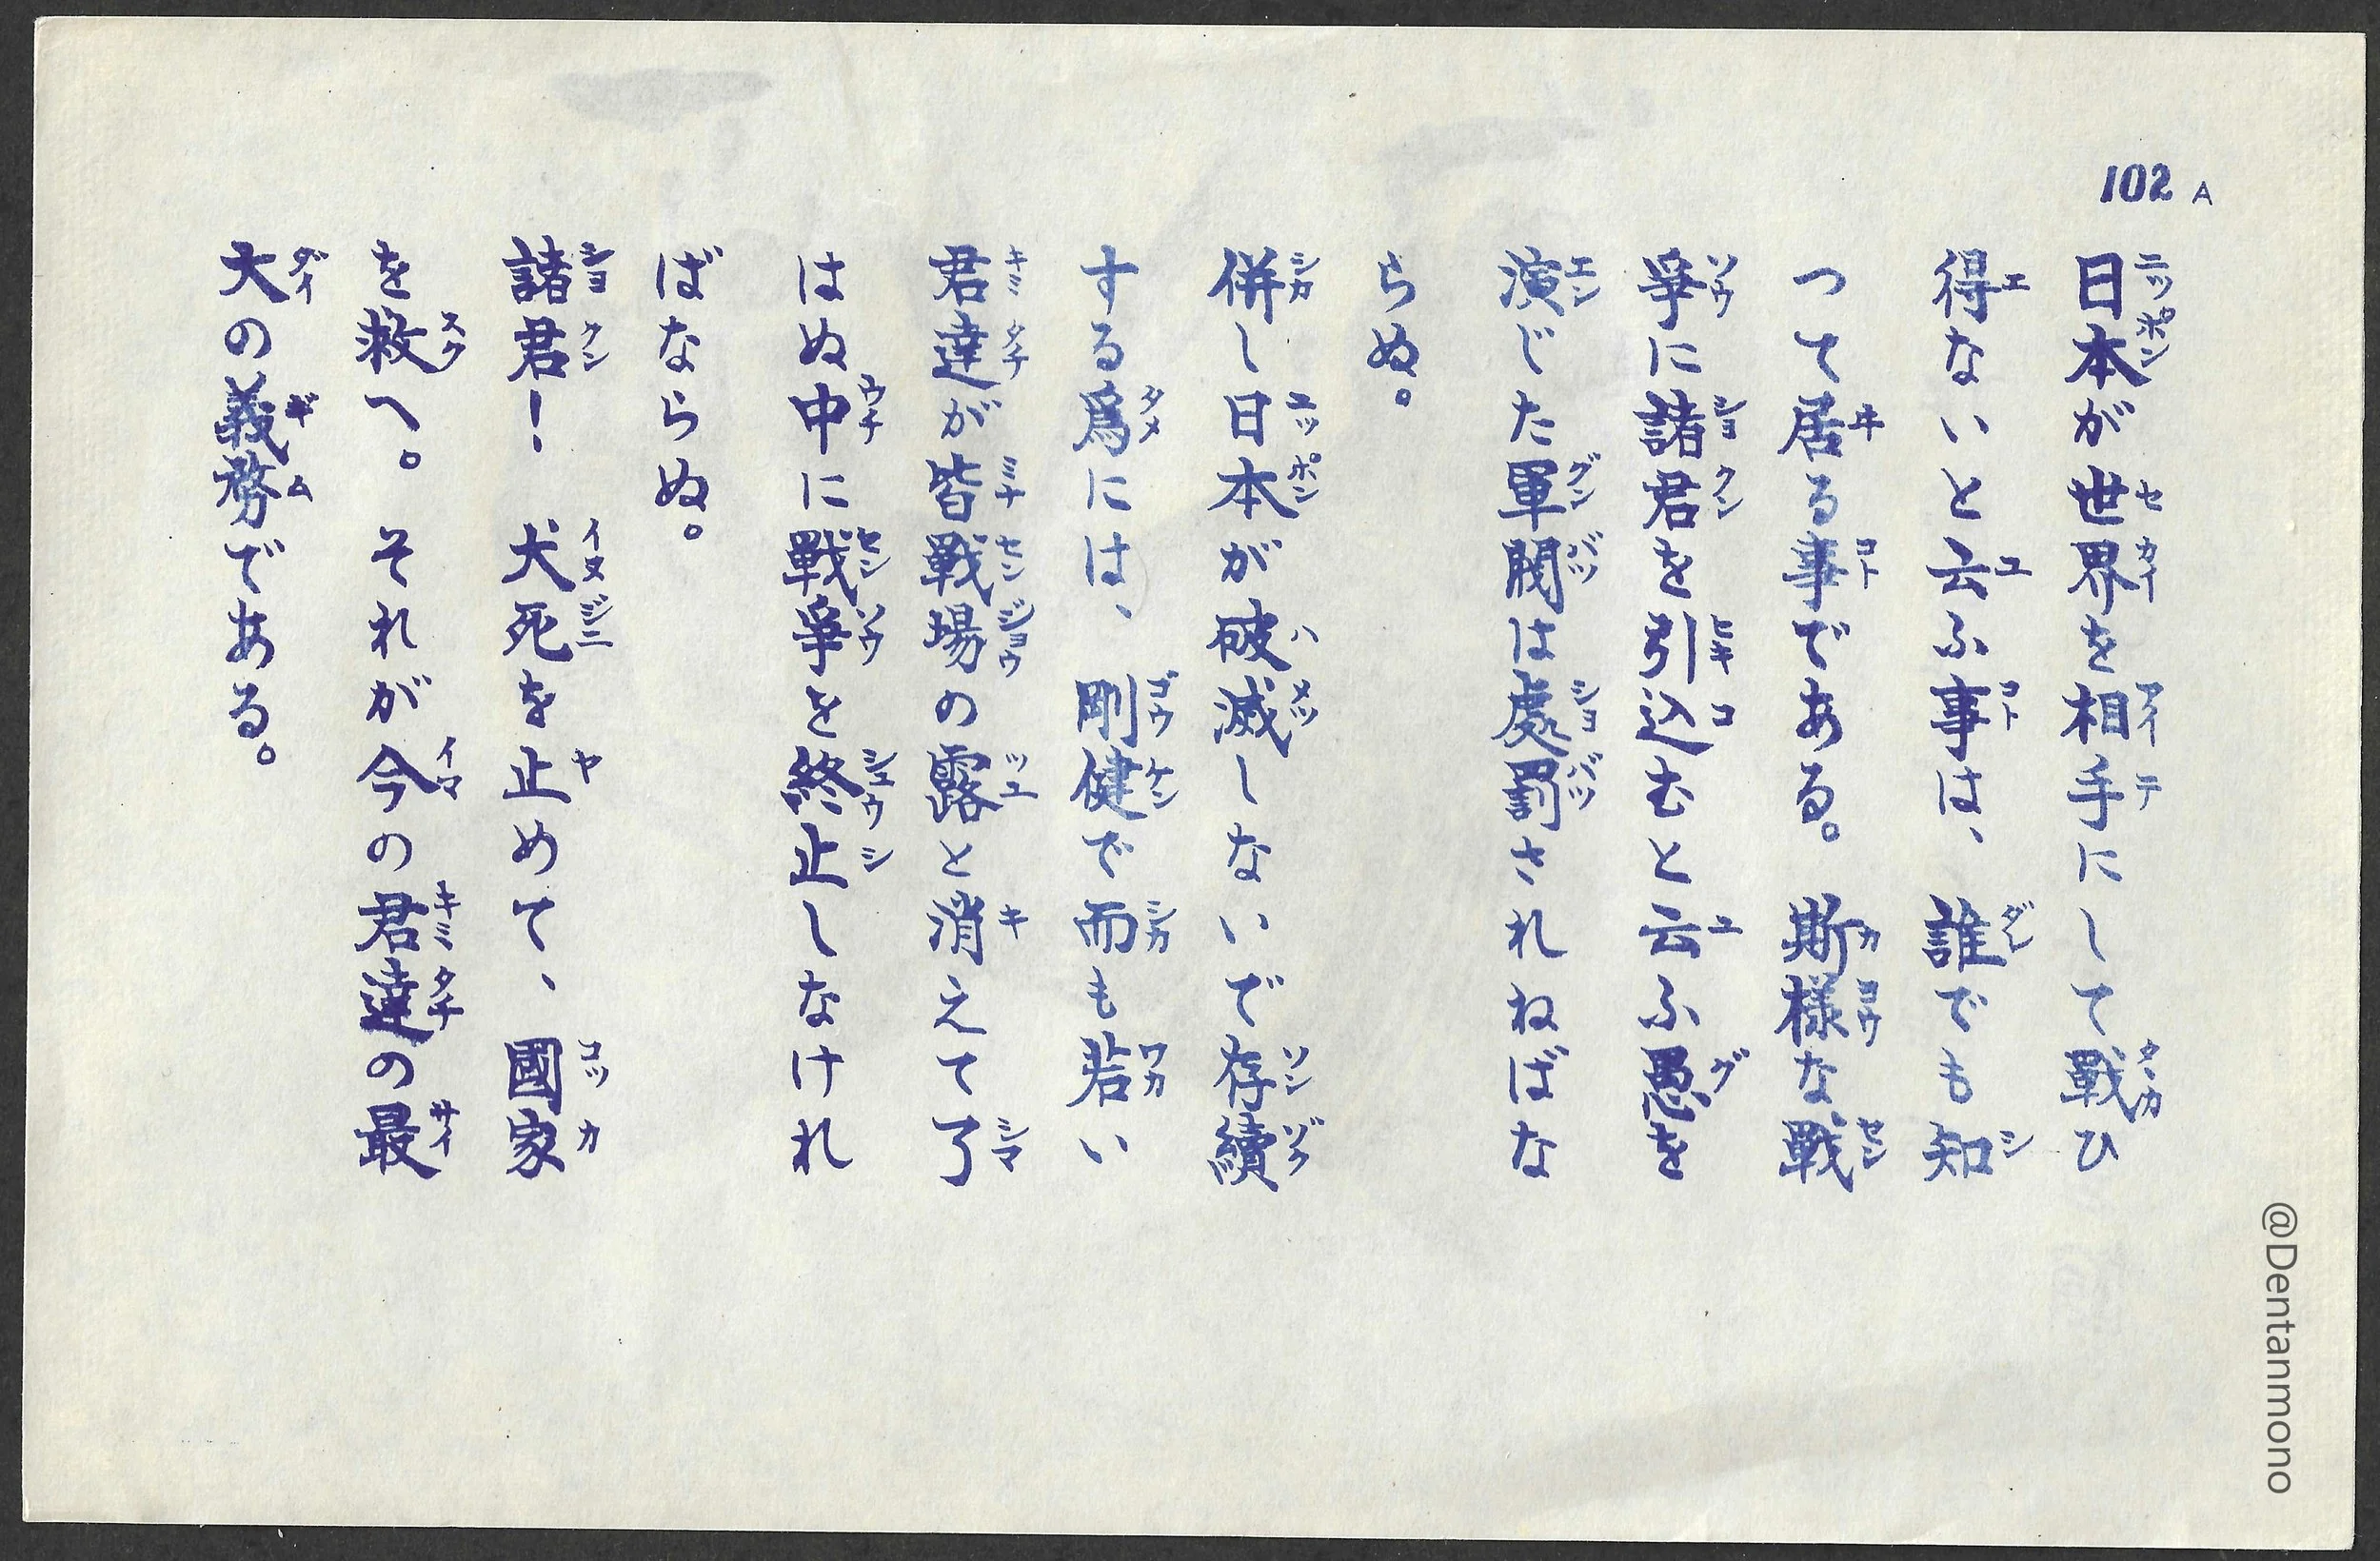 102 A
日本が世界を相手にして戰ひ
得ないと云ふ事は、誰でも知
つて居る事である。斯様な戰
爭に諸君を引込むと云ふ愚を
演じた軍閥は處罰されねばな
らぬ。
併し日本が破滅しないで存續
する爲には、剛健で而も若い
君達が皆戰場の露と消えて了
はぬ中に戰爭を終止しなけれ
ばならぬ。
諸君！犬死を止めて、國家
を救へ。それが今の君達の最
大の義務である。
@Dentanmono